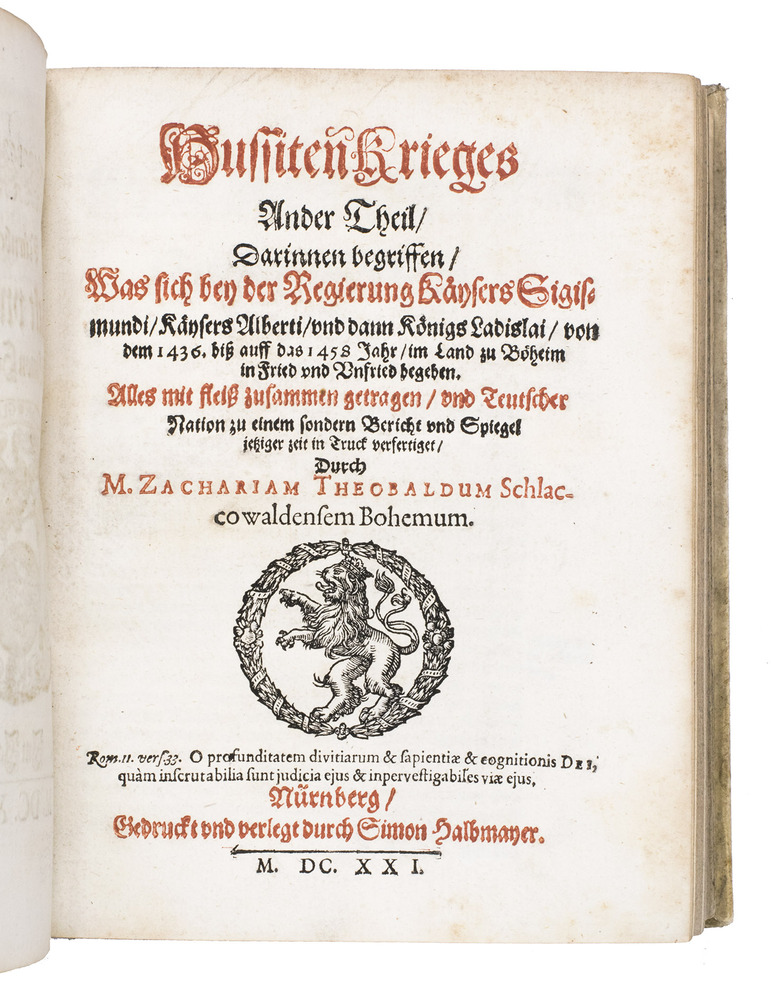 Hussiten̄ Krieges
Ander Theil/
Darinnen begriffen/
Was sich bey der Regierung Käysers Sigis-
mundi/Käysers Alberti/vnd dann Königs Ladislai/ von
dem 1436. biß auff das 1458 Jahr/im Land zu Böheim
in Fried vnd Vnfried begeben.
Alles mit fleiß zusammen getragen/ vnd Teutscher
Nation zu einem sondern Bericht vnd Spiegel
jetziger zeit in Truck verfertiget/
Durch
M. ZACHARIAM THEOBALDUM Schlac-
cowaldensem Bohemum.
Rom. 11. vers. 33. O profunditatem divitiarum & sapientiæ & cognitionis DEI,
quàm inscrutabilia sunt judicia ejus & inpervestigabiles viæ ejus.
Nürnberg/
Gedruckt vnd verlegt durch Simon Halbmayer.
M. DC. XXI.